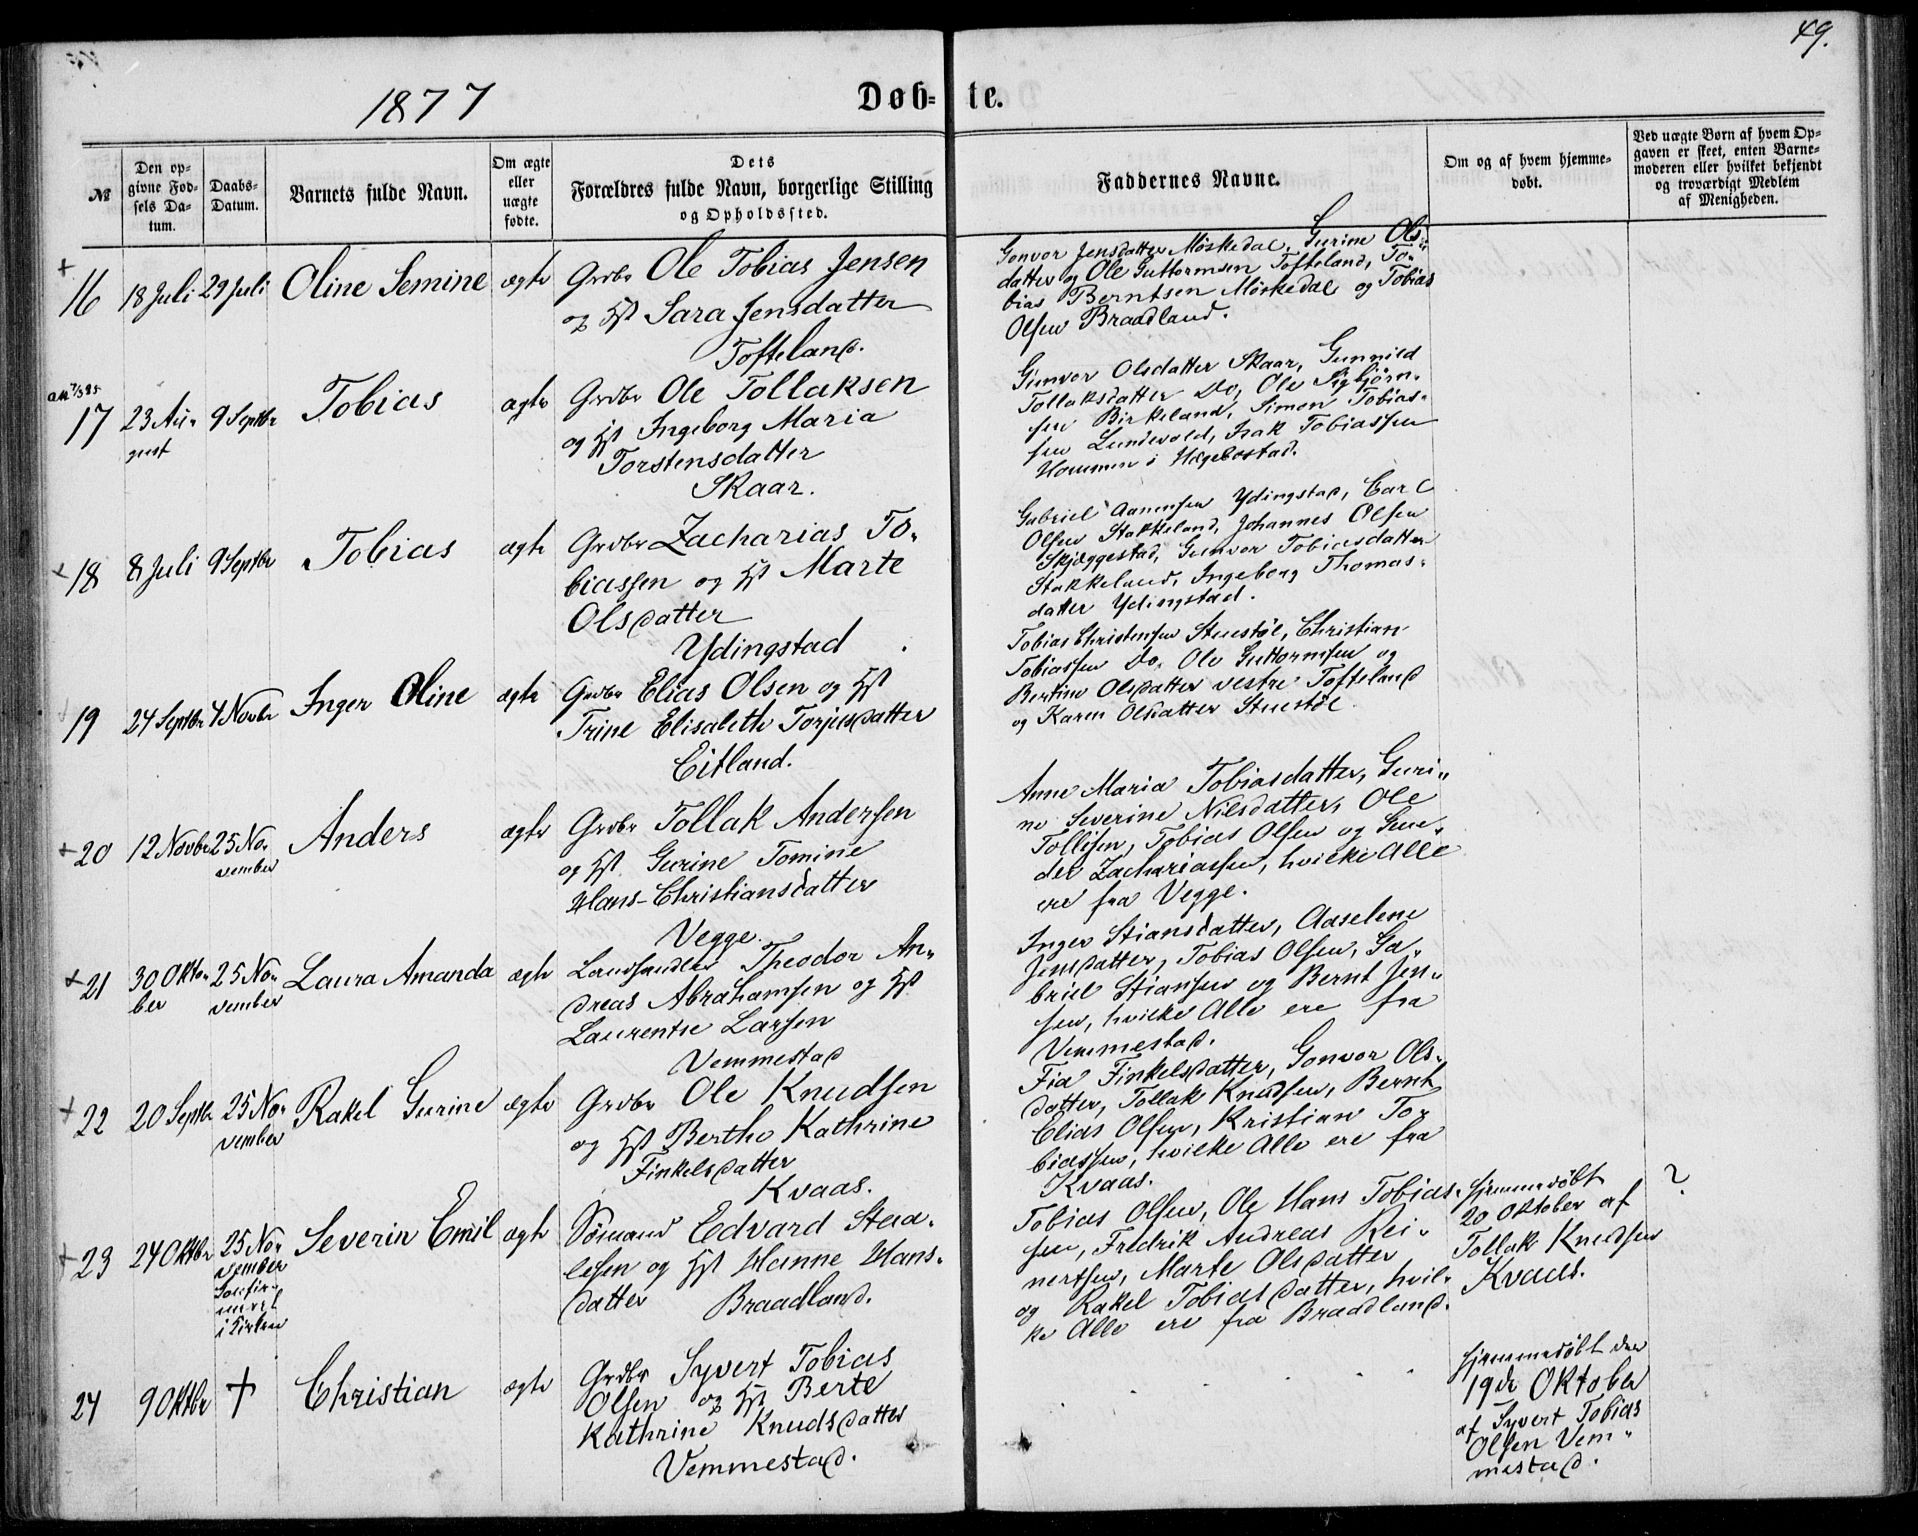 49.
1877
Døb= te.
№
Den op=
givne Fød=
sels Da=
tum.
Daabs=
Datum.
Barnets fulde Navn.
Om ægte
eller
uægte
fødte.
Dets
Forældres fulde Navn, borgerlige Stilling
og Opholdssted.
Faddernes Navne.
Om og af hvem hjemme=
døbt.
Ved uægte Børn af hvem Op=
gaven er skeet, enten Barne=
moderen eller hvilket bekjendt
og troværdigt Medlem
af Menigheden.
+
16 18 Juli 29 Juli Oline Semine ægte Grdbr Ole Tobias Jensen
og Hst Sara Jensdatter
Tofteland.
Gonvor Jensdatter Møskedal, Gurine Ols=
datter og Ole Guttormsen Tofteland, To=
bias Berntsen Møskedal og Tobias
Olsen Braadland.
17 23 Au=
gust
9 Septbr Tobias ægte Grdbr Ole Tollaksen
og Hst Ingeborg Maria
Torstensdatter
Skaar.
Gunvor Olsdatter Skaar, Gunnild
Tollaksdatter Do, Ole Sigbjørn=
sen Birkeland, Simon Tobias=
sen Lundevold, Isak Tobiassen
Hommen i Hægebostad.
+ 18 8 Juli 9 Septbr Tobias ægte Grdbr Zacharias To=
biassen og Hst Marte
Olsdatter
Ydingstad
Gabriel Aanensen Ydingstad, Carl
Olsen Stakkeland, Johannes Olsen
Skjeggestad, Gunvor Tobiasdatter
Stakkeland, Ingeborg Thomas=
datter Ydingstad.
+
19 24 Septbr 4 Novbr Inger Oline ægte Grdbr Elias Olsen og Hst
Trine Elisabeth Torjusdatter
Eitland.
Tobias Christensen Stuestøl, Christian
Tobiassen Do, Ole Guttormsen og
Bertine Olsdatter vestre Tofteland
og Karen Olsdatter Stuestøl
+ 20 12 Novbr 25 No=
vember
Anders ægte Grdbr Tollak Andersen
og Hst Gurine Tomine
Hans-Christiansdatter
Vegge.
Anne Maria Tobiasdatter, Guri=
ne Severine Nilsdatter, Ole
Tollisen, Tobias Olsen og Gun=
der Zachariassen, hvilke Alle
ere fra Vegge.
+ 21 30 Okto=
ber
25 No=
vember
Laura Amanda ægte Landhandler Theodor An=
dreas Abrahamsen og Hst
Laurentse Larsen
Vemmestad
Inger Stiansdatter, Aaselene
Jensdatter, Tobias Olsen, Ga=
briel Stiansen og Bernt Jen=
sen, hvilke Alle ere fra
Vemmestad.
+ 22 20 Septbr 25 No=
vember
Rakel Gurine ægte Grdbr Ole Knudsen
og Hst Berthe Kathrine
Finkelsdatter
Kvaas.
Fia Finkelsdatter, Gonvor Ols=
datter, Tollak Knudsen, Bernt
Elias Olsen, Kristian To=
biassen, hvilke Alle ere fra
Kvaas.
+ 23 24 Oktbr 25 No=
vember
i Kirken
Severin Emil ægte Sømand Edvard Staa=
lesen og Hst Hanne Hans=
datter Braadland.
Tobias Olsen, Ole Hans Tobias=
sen, Fredrik Andreas Rei=
nertsen, Marte Olsdatter
og Rakel Tobiasdatter, hvil=
ke Alle ere fra Braadland.
Hjemmedøbt
20 Oktober af
Tollak Knudsen
Kvaas.
?
24 9 Oktbr + Christian ægte Grdbr Syvert Tobias
Olsen og Hst Berte
Kathrine Knudsdatter
Vemmestad.
Hjemmedøbt den
19de Oktober
af Syvert Tobias
Olsen Vem=
mestad.